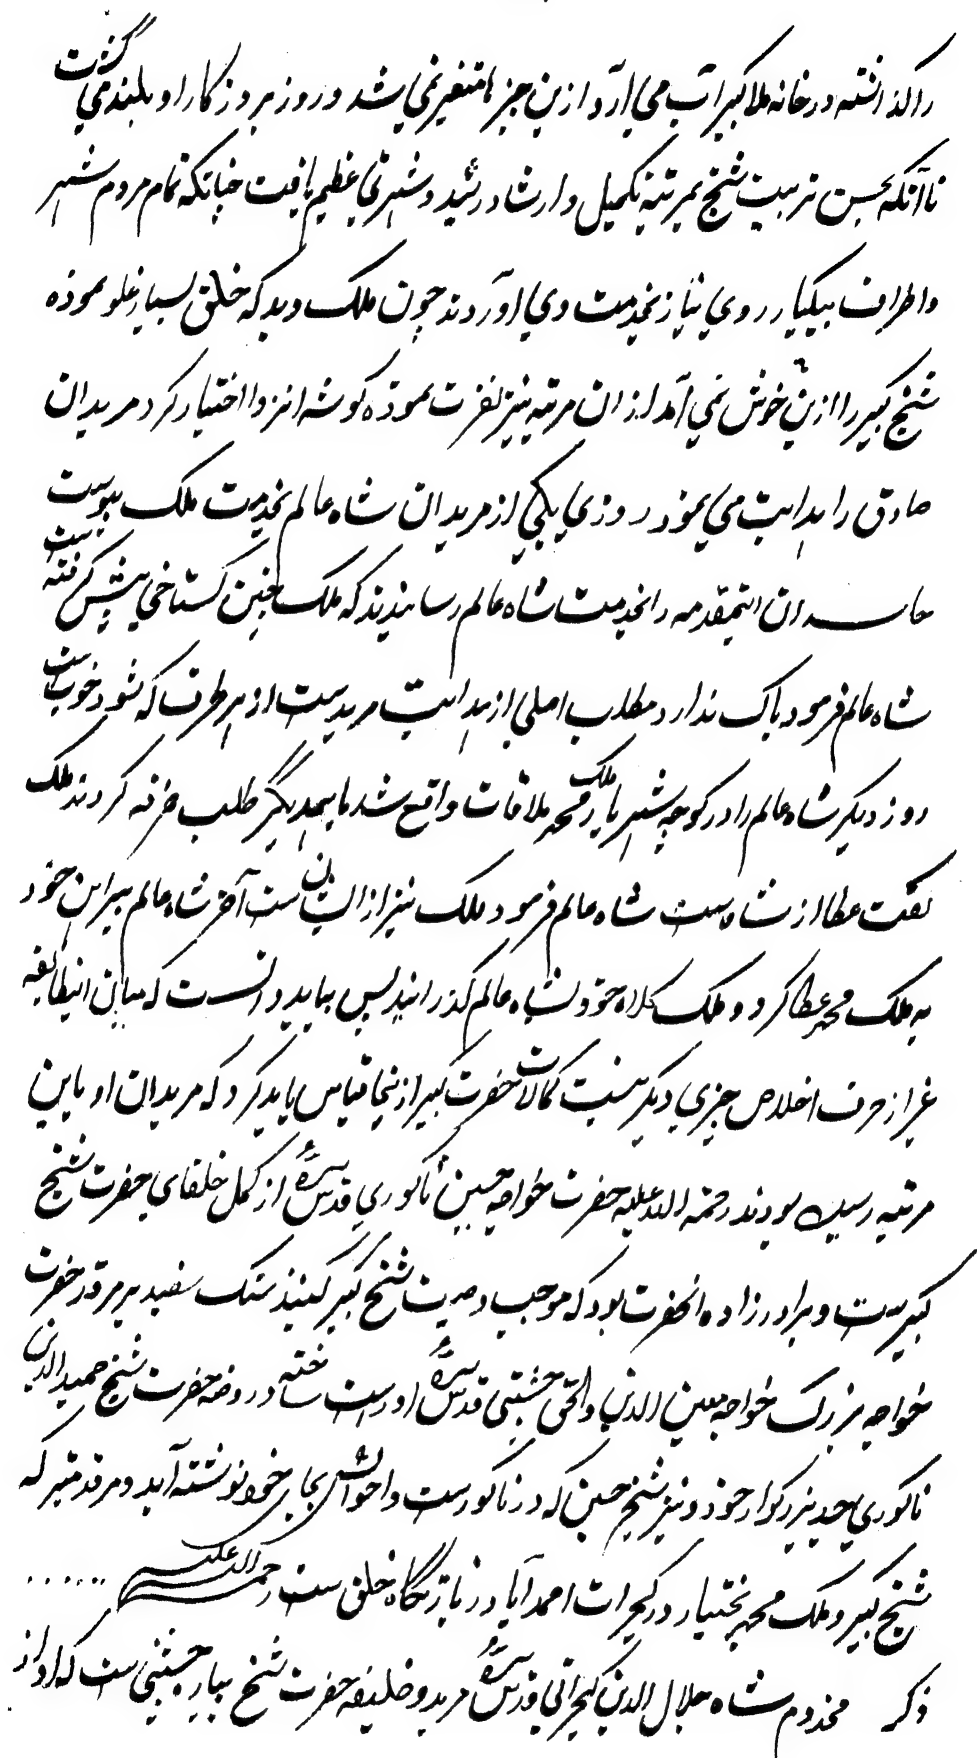 را گذاشته در خانه ملا کبیر آب می آرد ازین چیزها متغیر نمی شد و روز بروز کار او بلند می گشت
تا آنکه بحسن تربیت شیخ بمرتبه تکمیل و ارشاد رسید و شهرتی عظیم یافت چنانکه تمام مردم شهر
و اطراف بیکبار روی نیاز بخدمت وی آوردند چون ملک دید که خلق بسیار غلو نموده
شیخ کبیر را ازین خوش نمی آمد از ان مرتبه نیز نفرت نموده گوشه انزوا اختیار کرد مریدان
صادق را هدایت می نمود روزی یکی از مریدان شاه عالم بخدمت ملک پیوست
حاسدان اینمقدمه را بخدمت شاه عالم رسانیدند که ملک چنین گستاخی پیش گرفته است
شاه عالم فرمود باک ندارد مطلب اصلی از هدایت مریدست از هر طرف که شود خوبست
روز دیگر شاه عالم را در کوچه شهر با ملک محمد ملاقات واقع شد با همدیگر طلب خرقه کردند ملک
گفت عطا از شاه ست شاه عالم فرمود ملک نیز از ایشان ست آخر شاه عالم پیراهن خود
به ملک محمد عطا کرد و ملک کلاه خود بشاه عالم گذرانید پس بباید دانست که میان اینطایفه
غیر از حرف اخلاص چیزی دیگر نیست کمالات حضرت کبیر ازینجا قیاس باید کرد که مریدان او باین
مرتبه رسیده بودند رحمة الله علیه حضرت خواجه حسین ناگوری قدس سره از کمل خلفای حضرت شیخ
کبیر ست و برادرزاده آنحضرت بود که موجب وصیت شیخ کبیر گنبذ سنگ سفید بر مرقد حضرت
خواجه بزرگ خواجه معین الدین والحق چشتی قدس سره او راست ساخته و روضه حضرت شیخ حمید الدین
ناگوری جد بزرگوار خود و نیز شیخ حسین که در ناگورست و احوالش بجای خود نوشته آید و مرقد متبرکه
شیخ کبیر و ملک محمد بختیار در گجرات احمدآباد زیارتگاه خلق ست رحمة الله علیه ......
ذکر مخدوم شاه جلال الدین گجراتی قدس سره مرید و خلیفه حضرت شیخ پیاره چشتی ست که او از